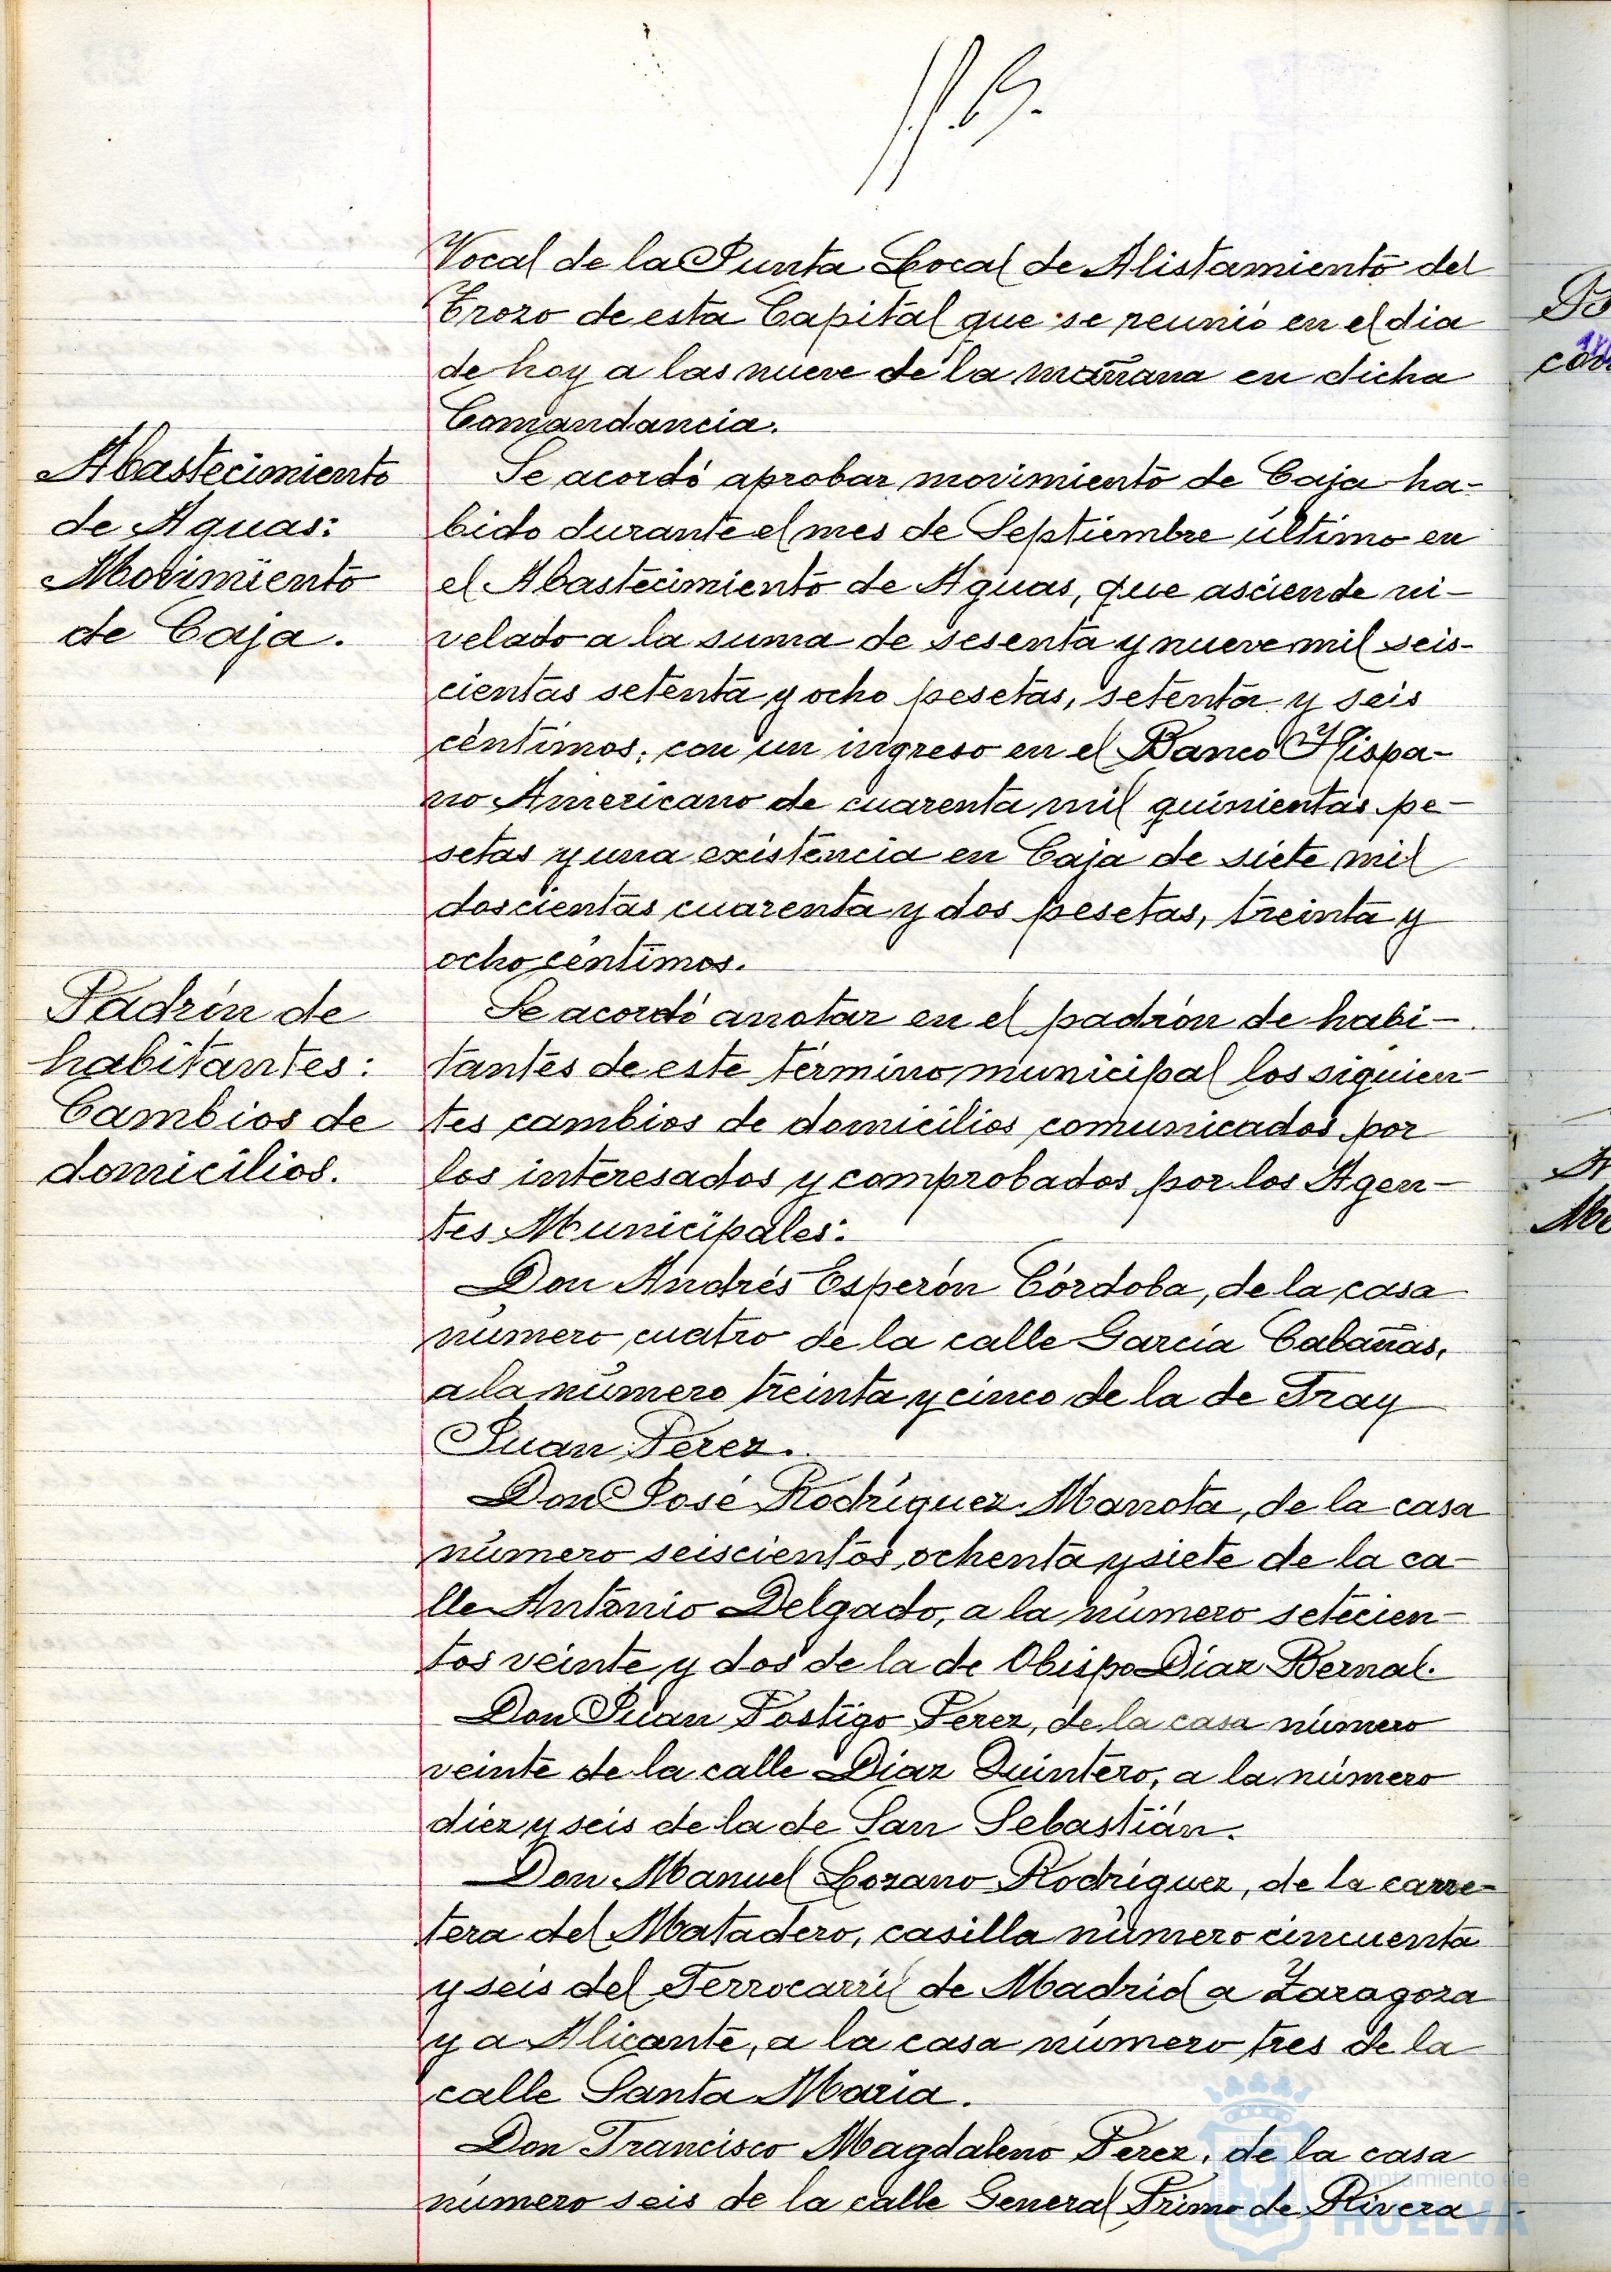 Vocal de la Junta Local de Alistamiento del
Trozo de esta Capital que se reunió en el dia
de hoy a las nueve de la mañana en dicha
Comandancia.
Abastecimiento
de Aguas:
Movimiento
de Caja.
Se acordó aprobar movimiento de Caja ha-
bido durante el mes de Septiembre último en
el Abastecimiento de Aguas, que asciende ni-
velado a la suma de sesenta y nueve mil seis-
cientas setenta y ocho pesetas, setenta y seis
céntimos; con un ingreso en el Banco Hispa-
no Americano de cuarenta mil quinientas pe-
setas y una existencia en Caja de siete mil
doscientas cuarenta y dos pesetas, treinta y
ocho céntimos.
Padrón de
habitantes:
Cambios de
domicilios.
Se acordó anotar en el padrón de habi-
tantes de este término municipal los siguien-
tes cambios de domicilios comunicados por
los interesados y comprobados por los Agen-
tes Municipales:
Don Andrés Esperón Córdoba, de la casa
número cuatro de la calle García Cabañas,
a la número treinta y cinco de la de Fray
Juan Perez.
Don José Rodríguez Marrota, de la casa
número seiscientos ochenta y siete de la ca-
lle Antonio Delgado, a la número setecien-
tos veinte y dos de la de Obispo Díaz Bernal.
Don Juan Postigo Perez, de la casa número
veinte de la calle Díaz Quintero, a la número
diez y seis de la de San Sebastián.
Don Manuel Lozano Rodríguez, de la carre-
tera del Matadero, casilla número cincuenta
y seis del Ferrocarril de Madrid a Zaragoza
y a Alicante, a la casa número tres de la
calle Santa María.
Don Francisco Magdaleno Perez, de la casa
número seis de la calle General Primo de Rivera
Ayuntamiento de
HUELVA